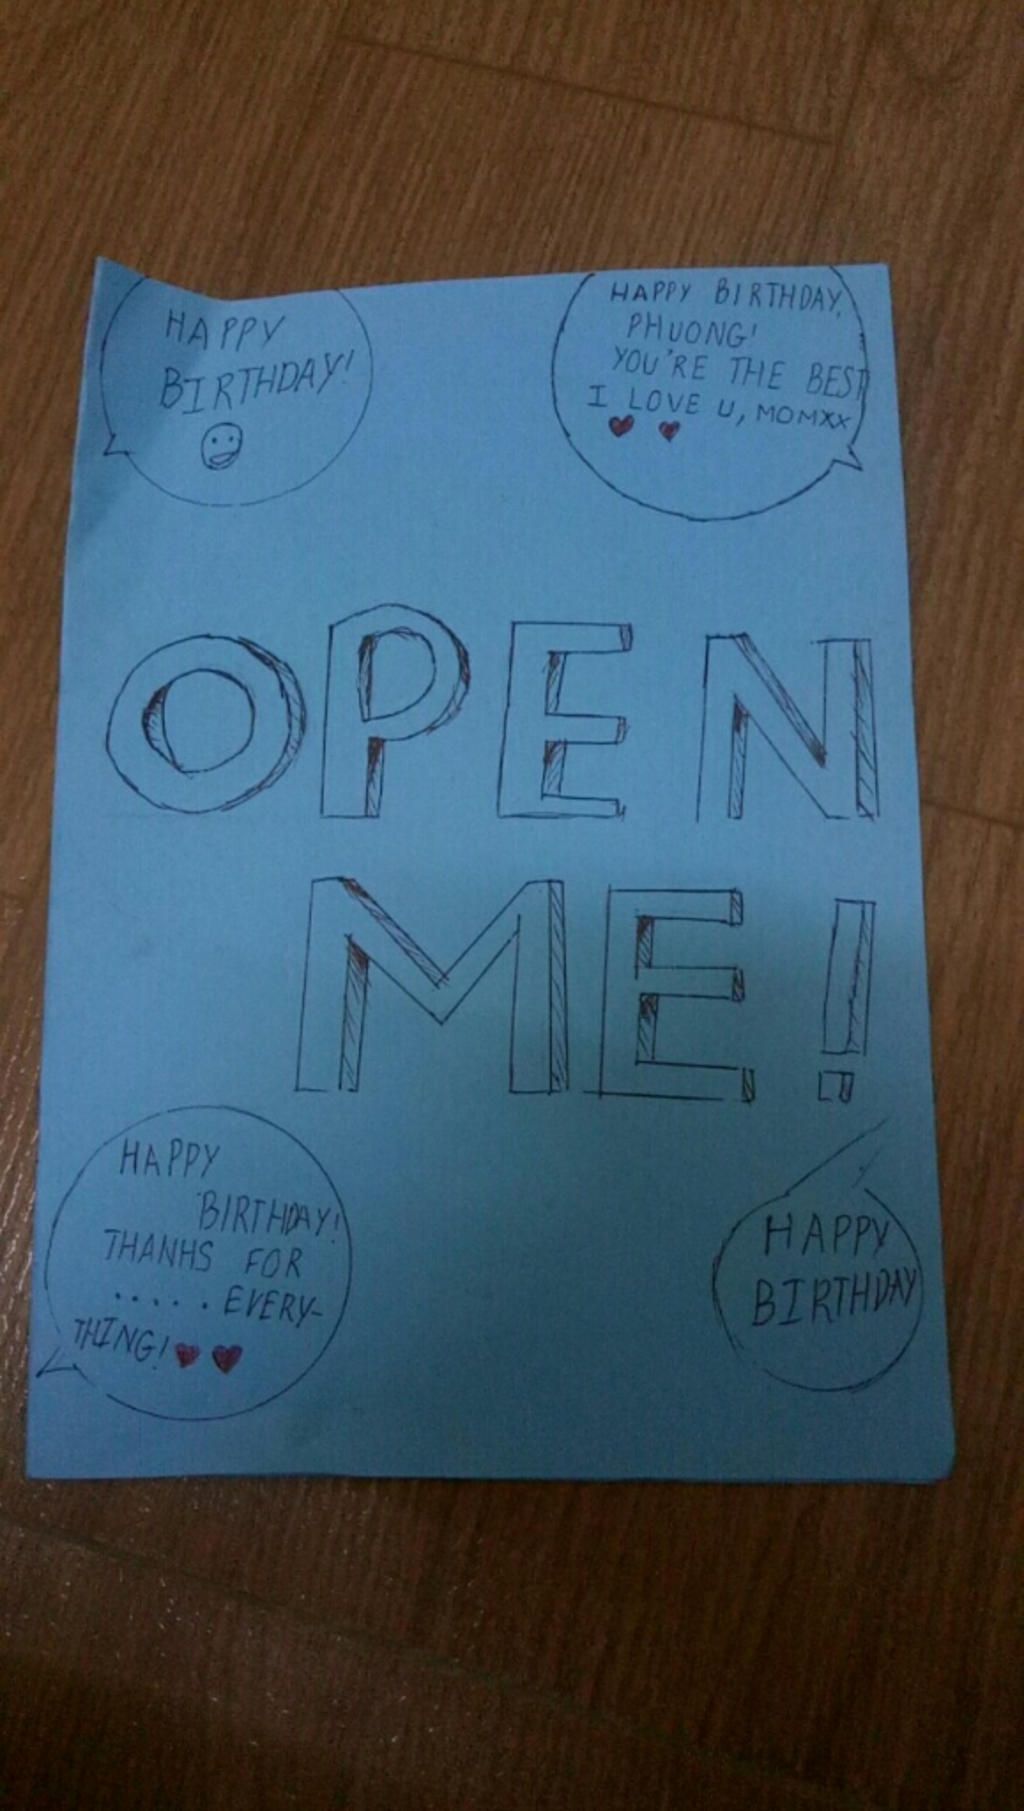 HAPPY
BIRTHDAY!
HAPPY BIRTHDAY,
PHUONG!
YOU'RE THE BEST
I LOVE U, MOMXX
OPEN
ME!
HAPPY
BIRTHDAY!
THANHS FOR
.....EVERY-
THING!
HAPPY
BIRTHDAY